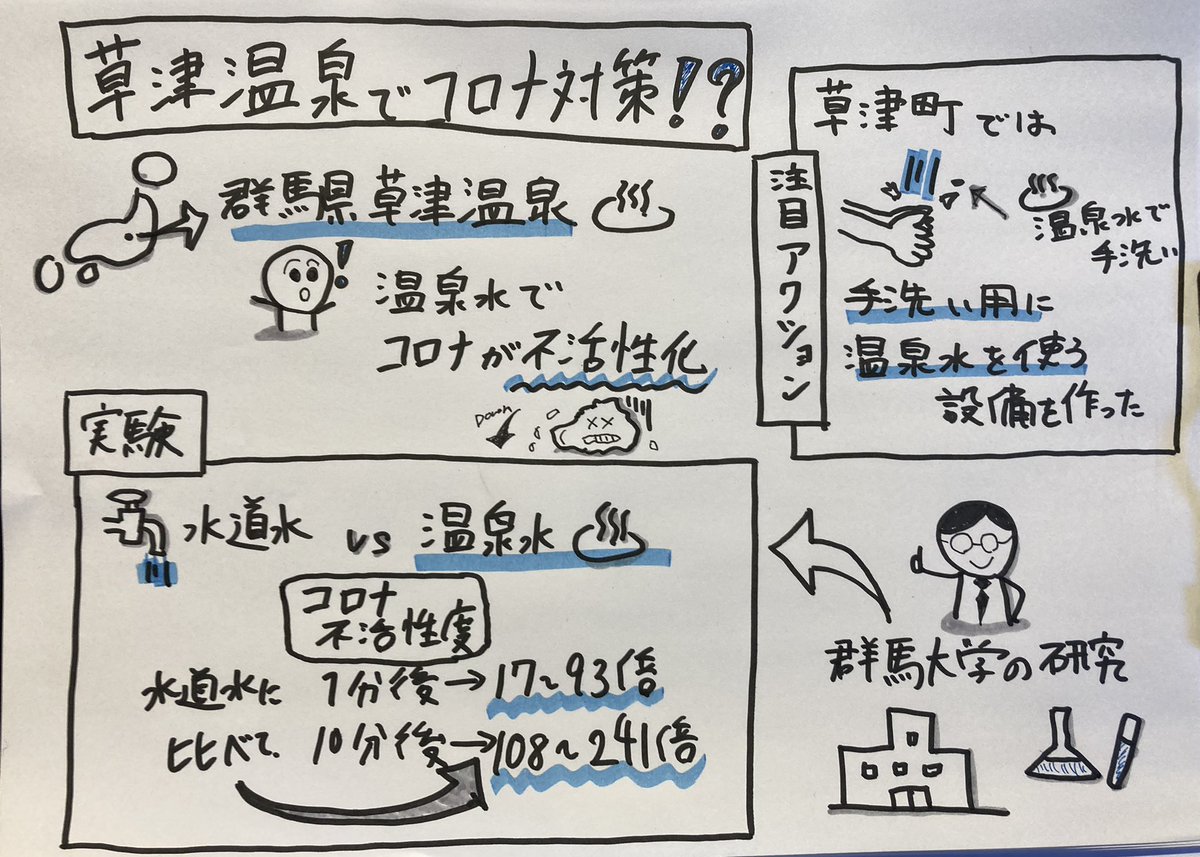 草津温泉でコロナ対策!?
群馬県草津温泉
温泉水で
コロナが不活性化
Down
注目アクション
草津町では
温泉水で
手洗い
手洗い用に
温泉水を使う
設備を作った
実験
水道水 vs 温泉水
コロナ
不活性度
水道水に 1分後→17~93倍
比べて 10分後→108~241倍
群馬大学の研究